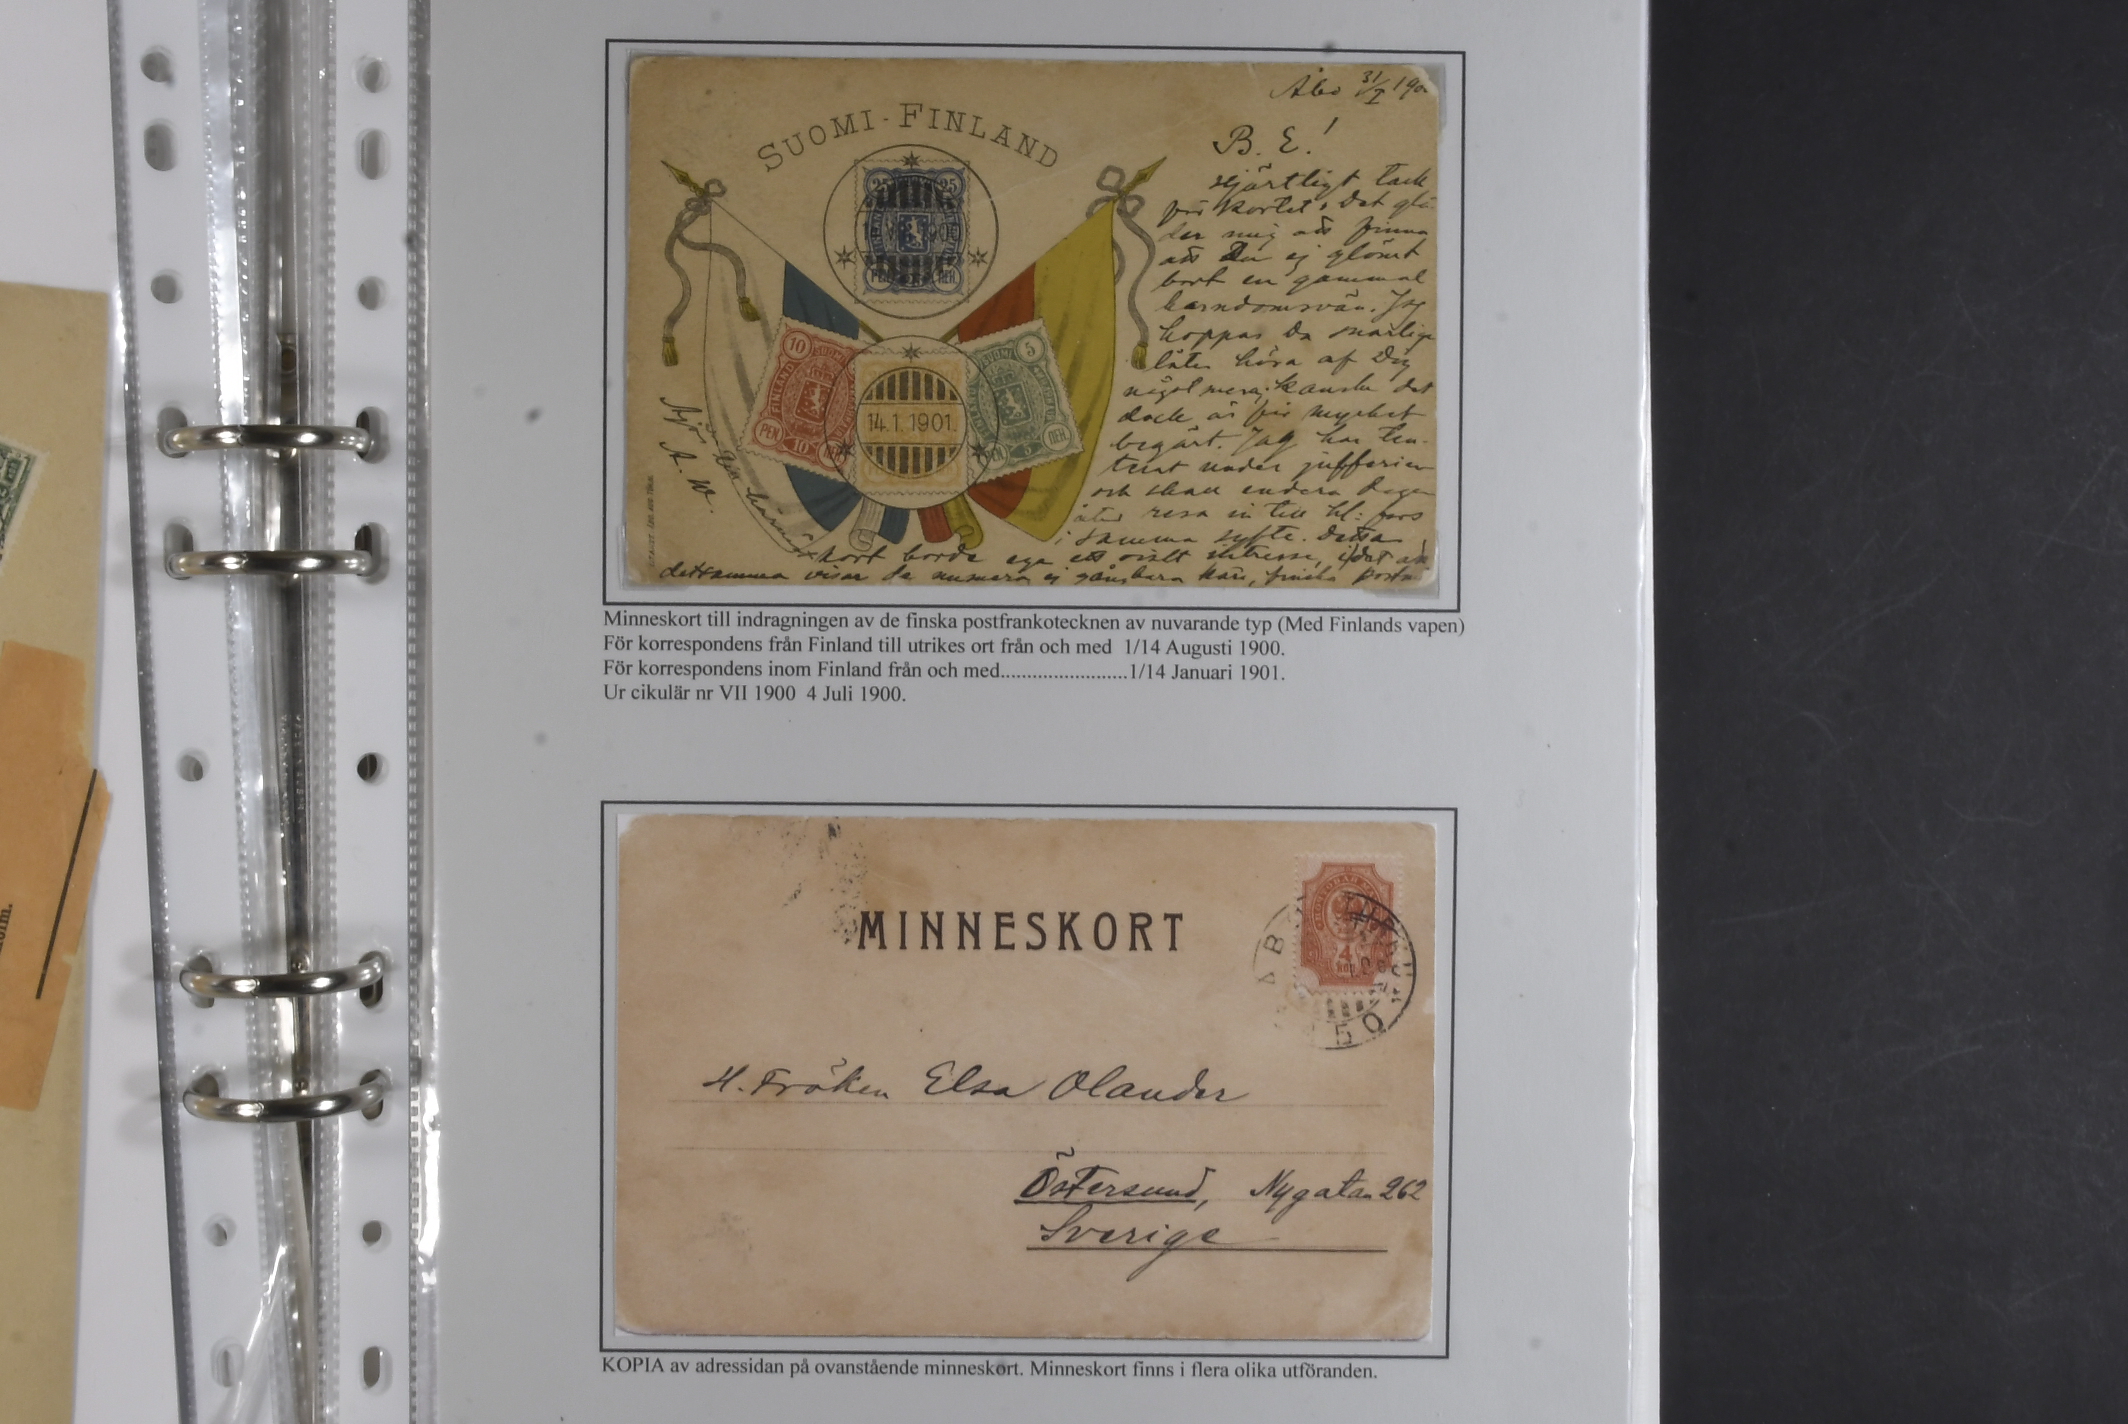 SUOMI-FINLAND
Åbo 31/I 190
B. E!
Hjärtligt tack
för kortet. Det glä-
der mig att finna
att Du ej glömt
bort en gammal
barndomsvän. Jag
hoppas Du snarligen
låter höra af Dig
något mera; kanske det
dock är för mycket
begärt. Jag har ten-
terat under julferien
och skall endera dagen
åter resa in till H:fors
i samma syfte. Detta
kort borde ega ett visst intresse, i det att
detsamma visar de numera ej gångbara kära, finska postm
A. W.
25 25
FINLAND
PEN
ПЕН
10
SUOMI
FINLAND
PEN
10
14.1.1901.
SUOMI
5
PEN
5
ПЕН
Minneskort till indragningen av de finska postfrankotecknen av nuvarande typ (Med Finlands vapen)
För korrespondens från Finland till utrikes ort från och med 1/14 Augusti 1900.
För korrespondens inom Finland från och med........................1/14 Januari 1901.
Ur cikulär nr VII 1900 4 Juli 1900.
MINNESKORT
4
КОП
H. Fröken Elsa Olander
Östersund, Nygatan 262
Sverige
KOPIA av adressidan på ovanstående minneskort. Minneskort finns i flera olika utföranden.